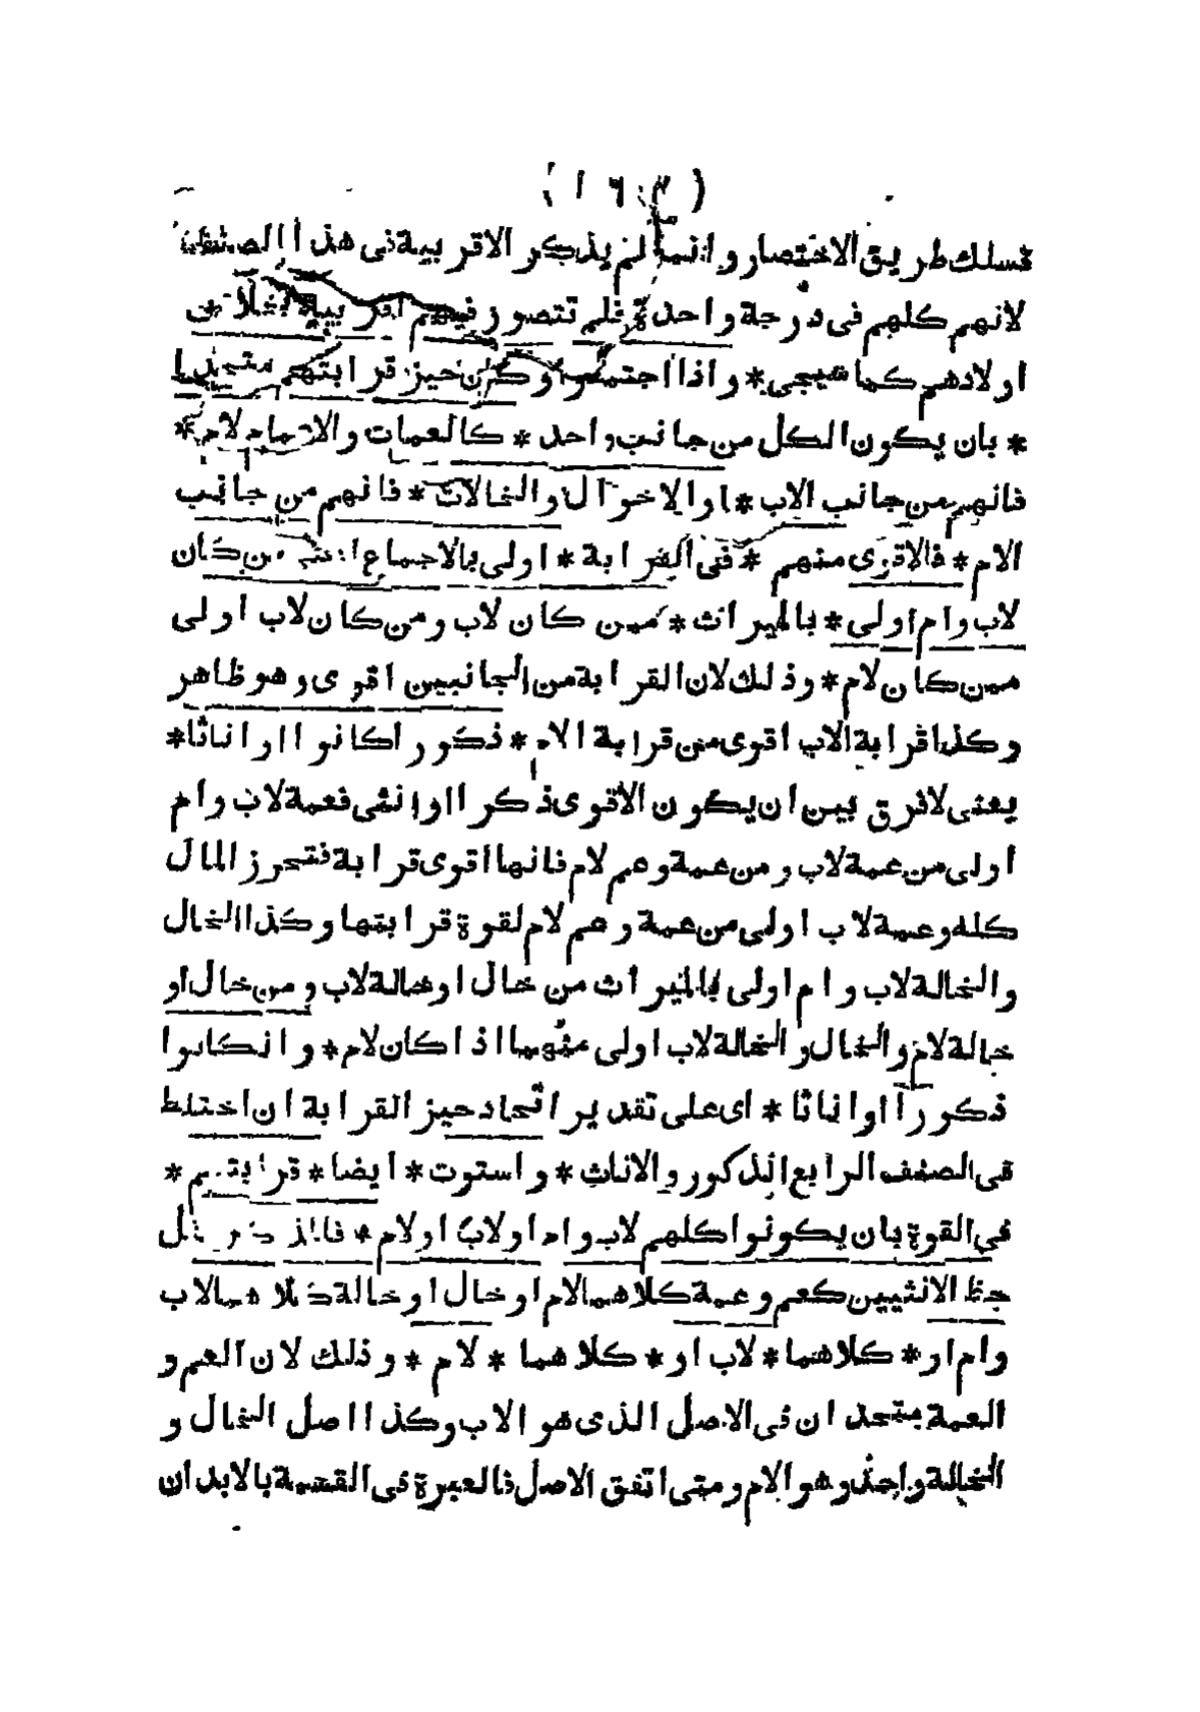 ( ١٦٣ )
فسلك طريق الاختصار وانما لم يذكر الاقربية فى هذا الصنف
لانهم كلهم فى درجة واحدة فلم تتصور فيهم اقربية بخلاف
اولادهم كما سيجى * واذا اجتمعوا وكان حيز قرابتهم متحدا
* بان يكون الكل من جانب واحد * كالعمات والاعمام لام *
فانهم من جانب الاب * او الاخوال والخالات * فانهم من جانب
الام * فالاقوى منهم * فى القرابة * اولى بالاجماع من كان
لاب وام اولى * بالميراث * ممن كان لاب ومن كان لاب اولى
ممن كان لام * وذلك لان القرابة من الجانبين اقوى وهو ظاهر
وكذا قرابة الاب اقوى من قرابة الام * ذكورا كانوا او اناثا *
يعنى لا فرق بين ان يكون الاقوى ذكرا او انثى فعمة لاب وام
اولى من عمة لاب ومن عمة وعم لام فانها اقوى قرابة فتحرز المال
كله وعمة لاب اولى من عمة وعم لام لقوة قرابتها وكذا الخال
والخالة لاب وام اولى بالميراث من خال او خالة لاب ومن خال او
خالة لام والخال والخالة لاب اولى منهما اذا كان لام * وان كانوا
ذكورا او اناثا * اى على تقدير اتحاد حيز القرابة ان اختلط
فى الصنف الرابع الذكور والاناث * واستوت * ايضا * قرابتهم *
فى القوة بان يكونوا كلهم لاب وام او لاب او لام * فللذكر مثل
حظ الانثيين كعم وعمة كلاهما لام او خال او خالة كلاهما لاب
وام او * كلاهما * لاب او * كلاهما * لام * وذلك لان العم و
العمة متحدان فى الاصل الذى هو الاب وكذا اصل الخال و
الخالة واحد وهو الام ومتى اتفق الاصل فالعبرة فى القسمة بالابدان